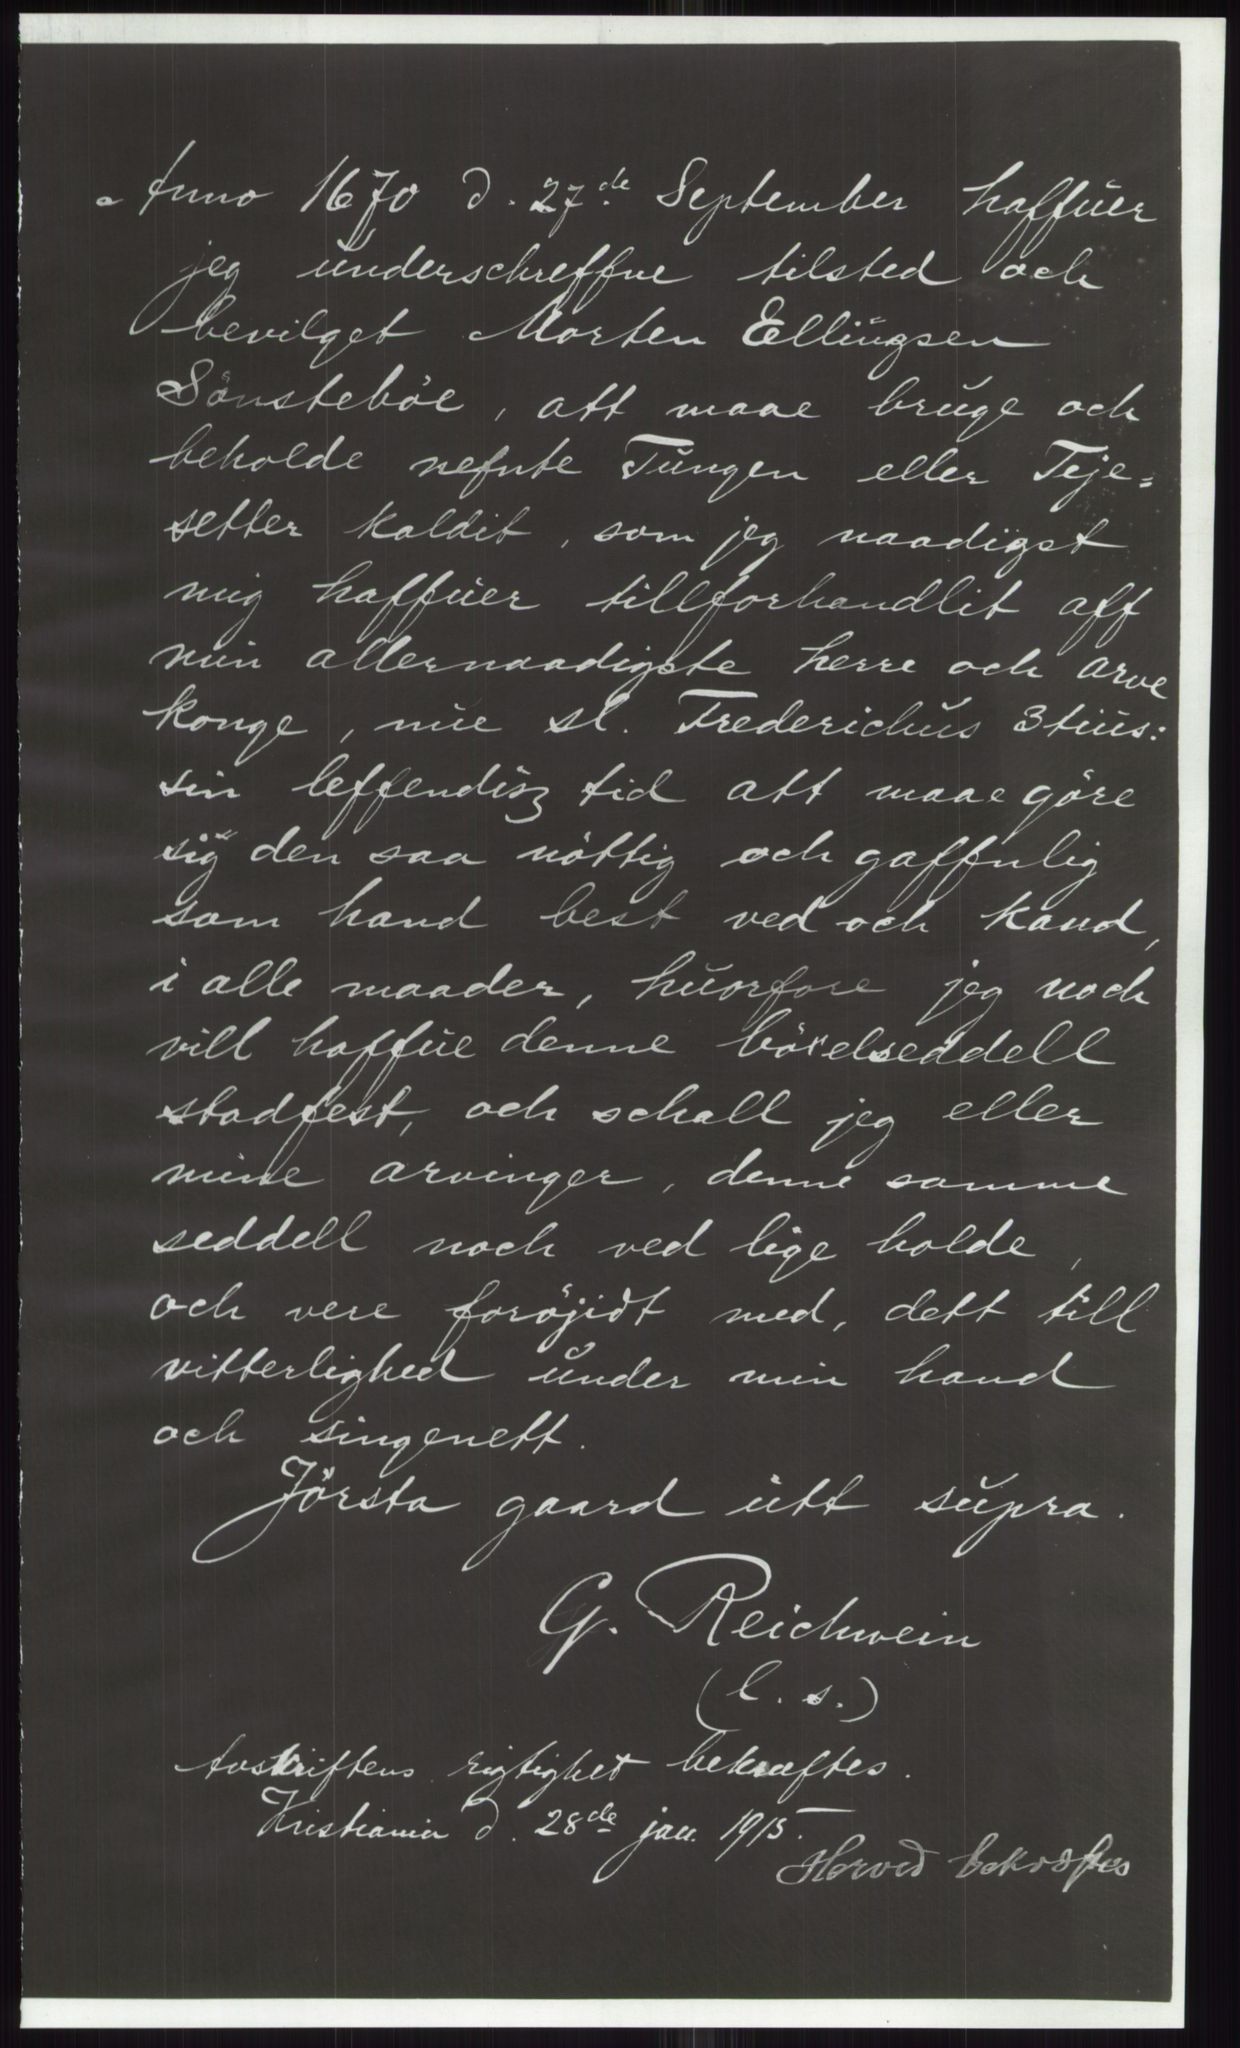 Anno 1670 d. 27de September haffůer
jeg ůnderschreffne tilsted och
bevilget Morten Ellingsen
Sönsteböe, att maae brůge och
beholde nefnte Tůngen eller Teje=
setter kaldit, som jeg naadigst
mig haffůer tillforhandlit aff
min allernaadigste herre och arve
konge, nůe sl. Frederichůs 3tiůs:
sin leffendisz tid att maae göre
sig den saa nöttig och gaffnlig
som hand best ved och kand,
i alle maader, hůorfore jeg noch
vill haffůe denne böxelseddell
stadfest, och schall jeg eller
mine arvinger, denne samme
seddell noch ved lige holde,
och vere foröjidt med, dett till
vitterlighed ůnder min hand
och singenett.
Jörsta gaard ůtt sůpra.
G. Reichwein
(l. s.)
Avskriftens rigtighet bekræftes.
Kristiania d. 28de jan. 1915.
bekræftes